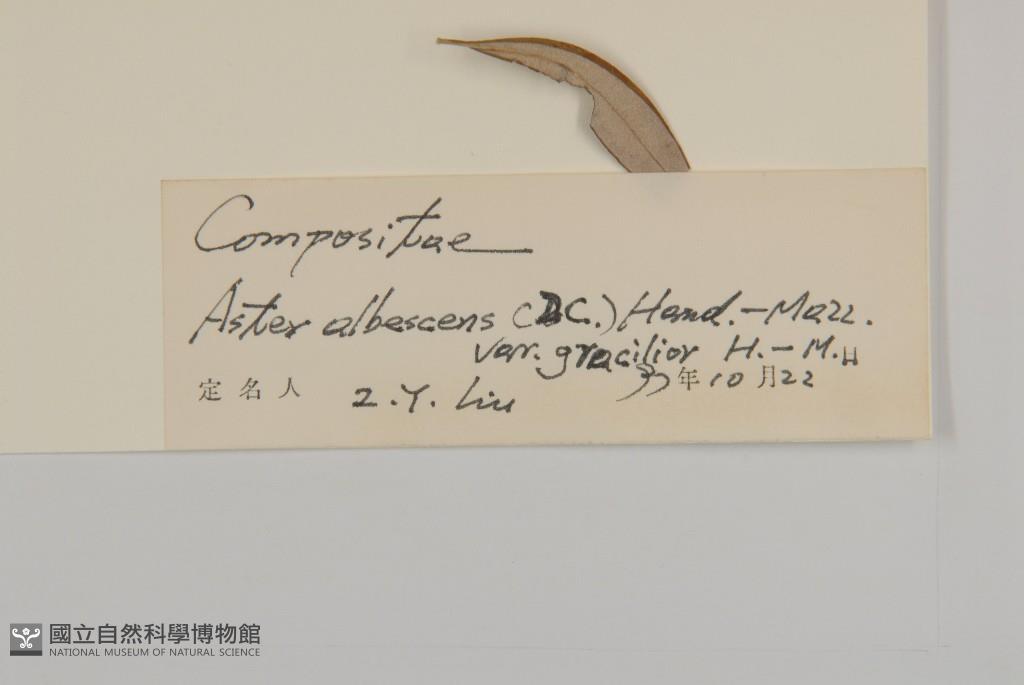 Compositae
Aster albescens (DC.) Hand.-Mazz.
var. gracilior H.-M.
定名人 Z.Y. Liu 年10月22日
國立自然科學博物館
NATIONAL MUSEUM OF NATURAL SCIENCE